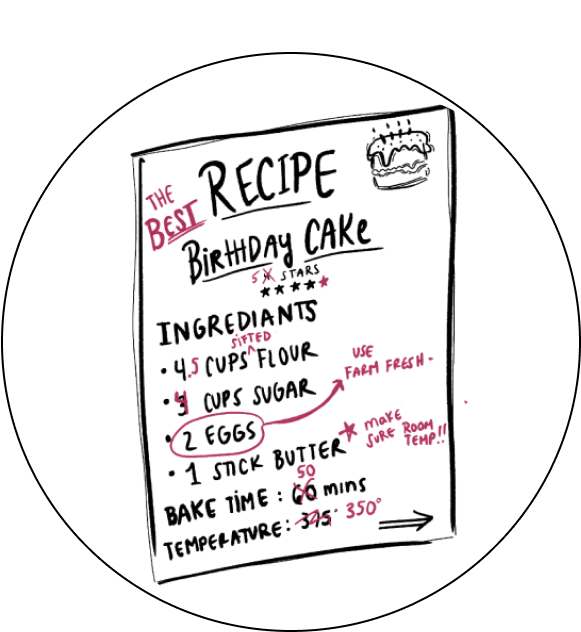 THE BEST RECIPE
BIRTHDAY CAKE
5 STARS
INGREDIANTS
• 4.5 CUPS SIFTED FLOUR
• 4 CUPS SUGAR
• 2 EGGS
USE FARM FRESH.
• 1 STICK BUTTER
MAKE SURE ROOM TEMP!!
BAKE TIME: 60 50 MINS
TEMPERATURE: 375° 350°